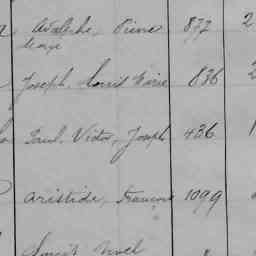 Adolphe, Pierre 872 2
Marie
Joseph, Louis Marie 836 2
Paul, Victor, Joseph 436 1
Aristide, François 1099
Louis Noel